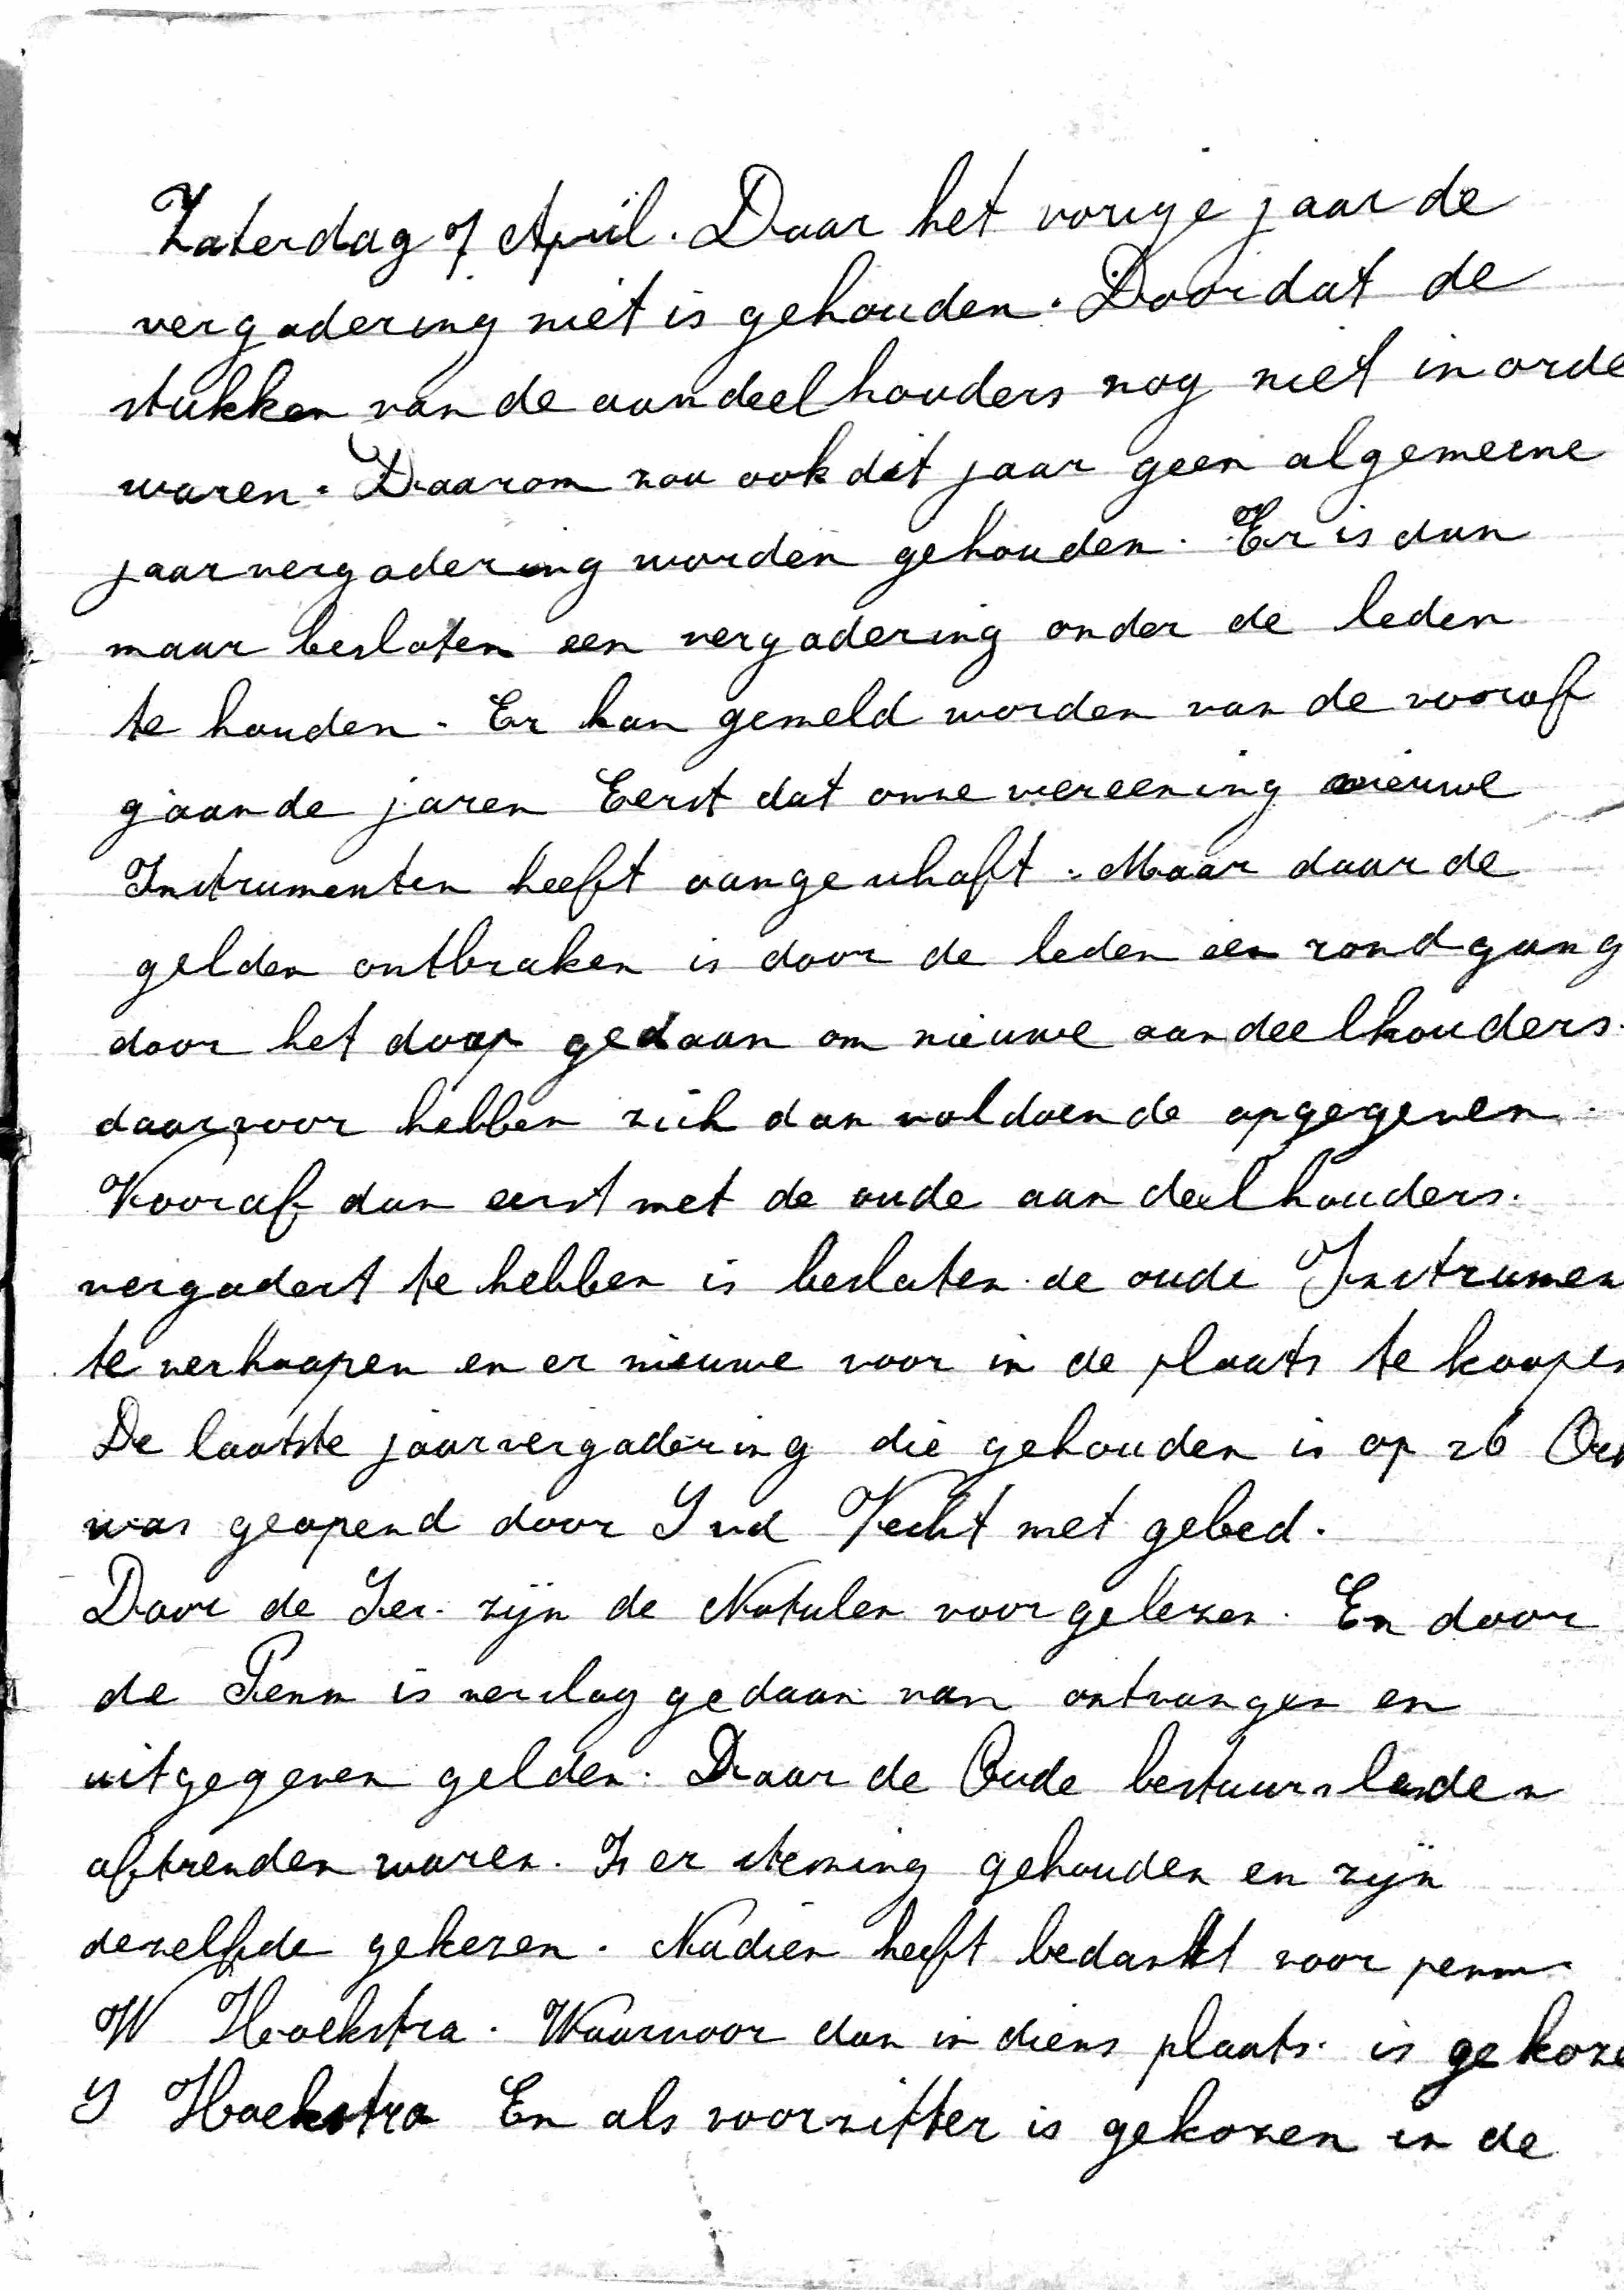 Zaterdag 7 April. Daar het vorige jaar de
vergadering niet is gehouden. Doordat de
stukken van de aandeelhouders nog niet in orde
waren. Daarom zou ook dit jaar geen algemeene
jaarvergadering worden gehouden. Er is dan
maar besloten een vergadering onder de leden
te houden. Er kan gemeld worden van de vooraf
gaande jaren Eerst dat onze vereening nieuwe
Instrumenten heeft aangeschaft. Maar daar de
gelden ontbraken is door de leden een rondgang
door het dorp gedaan om nieuwe aandeelhouders.
daarvoor hebben zich dan voldoende opgegeven.
Vooraf dan eerst met de oude aandeelhouders.
vergadert te hebben is besloten de oude Instrumen
te verkoopen en er nieuwe voor in de plaats te koopen
De laatste jaarvergadering die gehouden is op 26
was geopend door Vecht met gebed.
Door de Sec. zijn de Notulen voorgelezen. En door
de Penn is verslag gedaan van ontvangen en
uitgegeven gelden. Daar de Oude bestuursleden
aftrenden waren. Is er steming gehouden en zijn
dezelfde gekozen. Nadien heeft bedankt voor penm.
W Hoekstra. Waarvoor dan in diens plaats is gekoze
Hoekstra En als voorzitter is gekozen in de